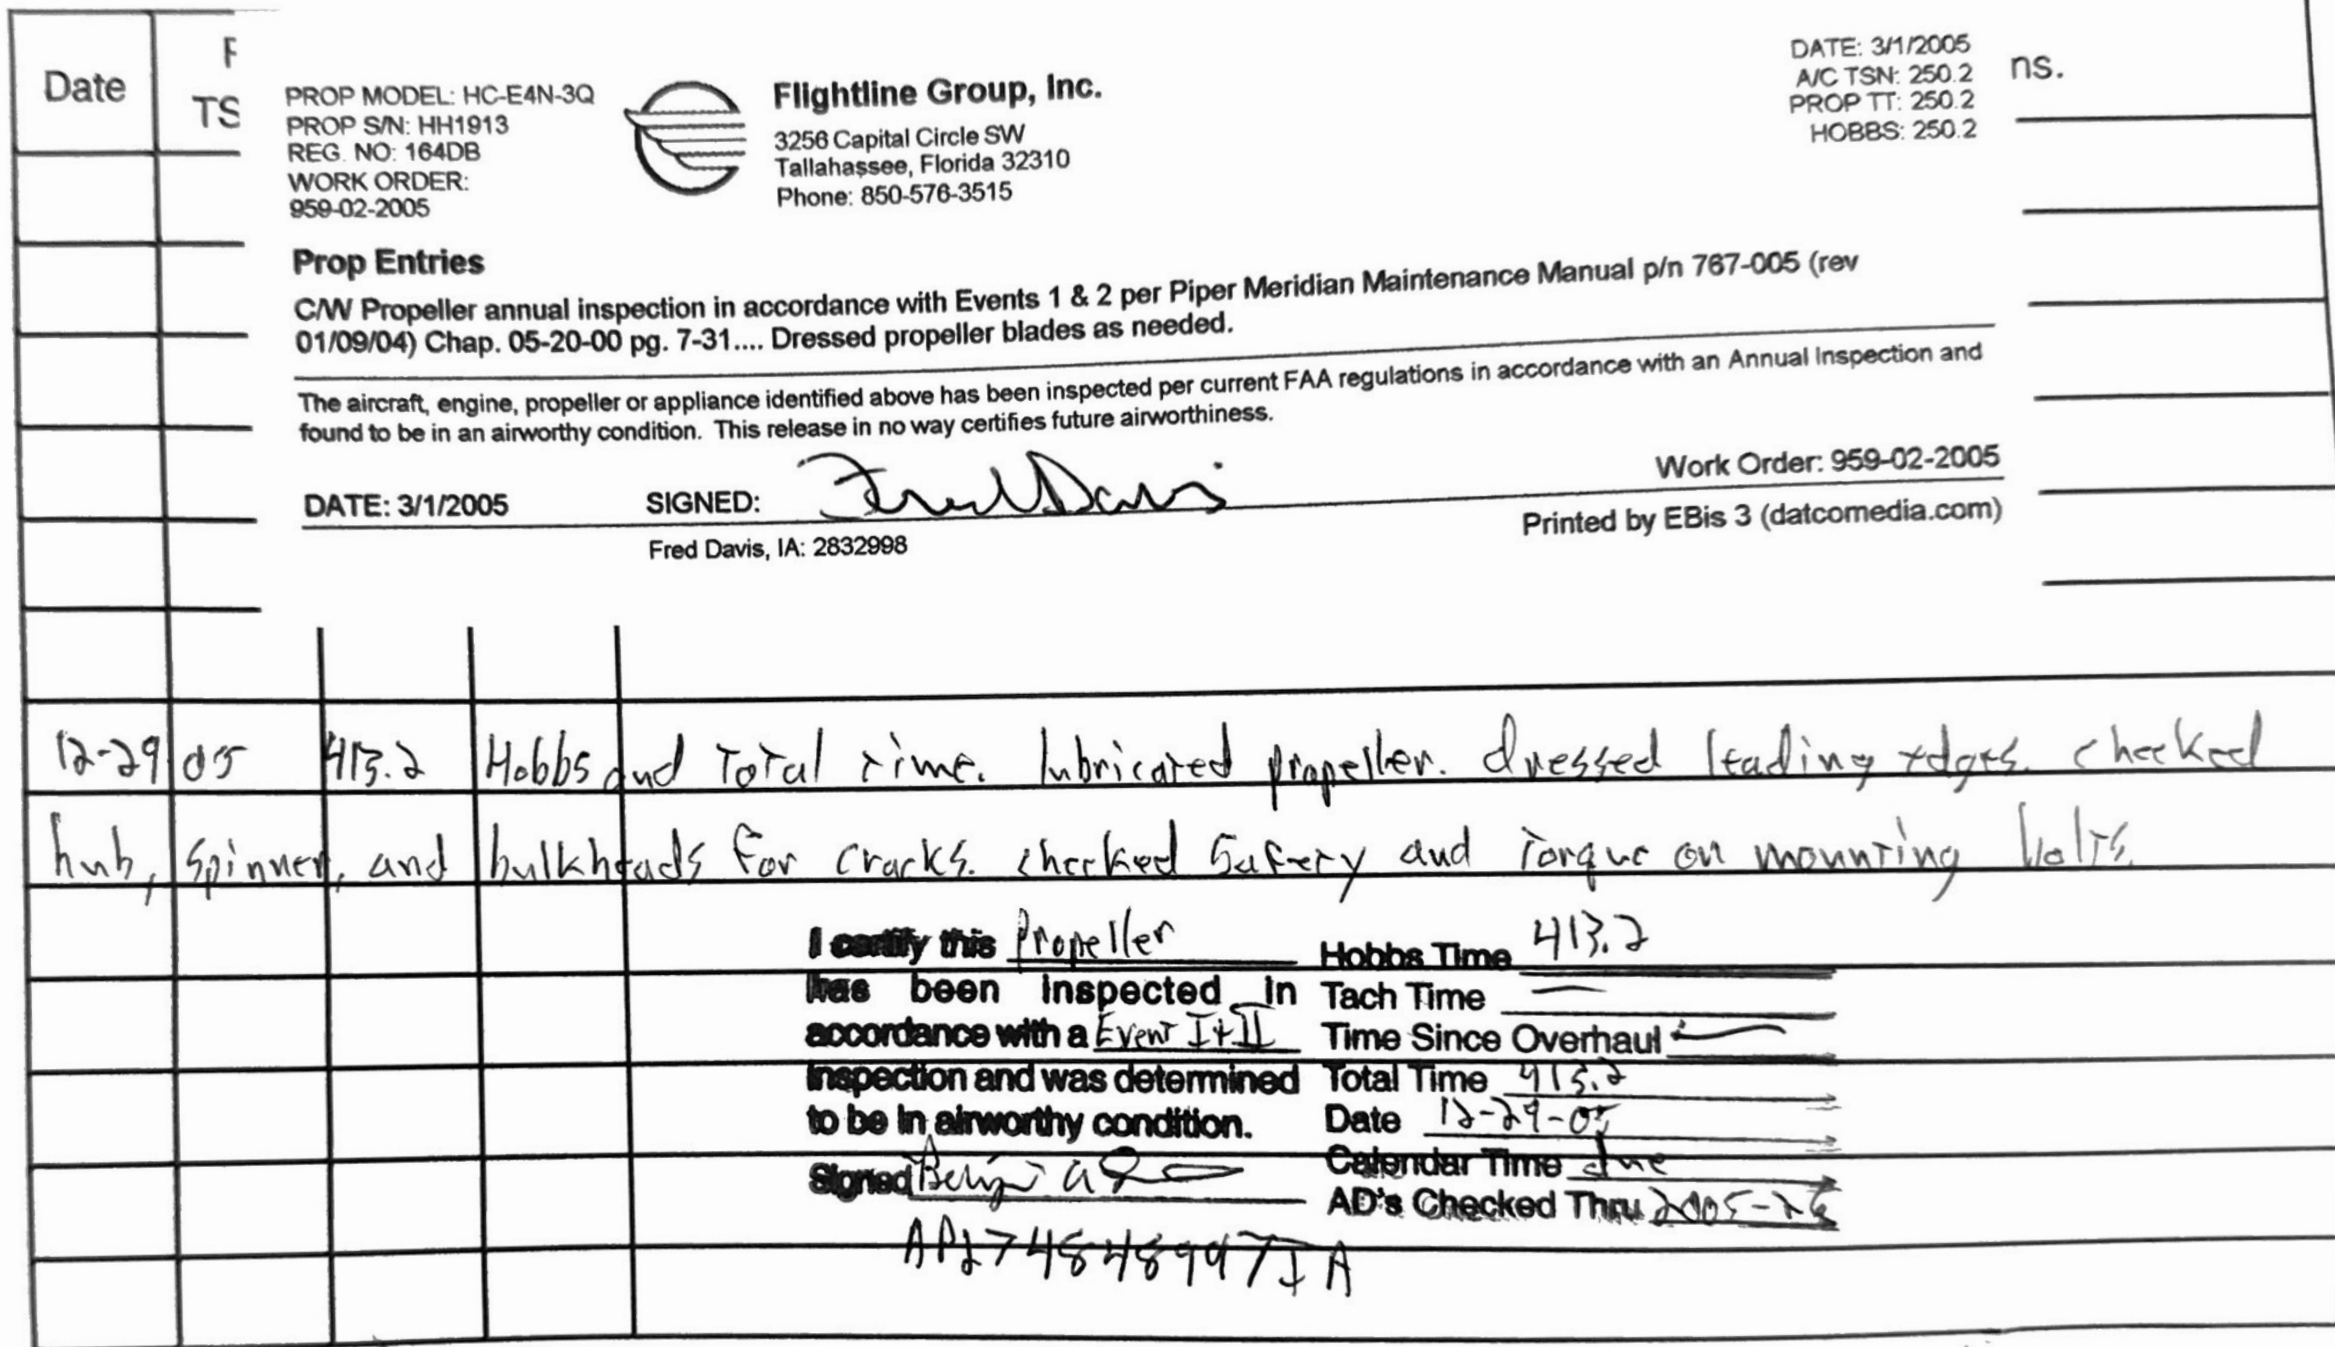 Date
TS
ns.
PROP MODEL: HC-E4N-3Q
PROP S/N: HH1913
REG. NO: 164DB
WORK ORDER:
959-02-2005
Flightline Group, Inc.
3256 Capital Circle SW
Tallahassee, Florida 32310
Phone: 850-576-3515
DATE: 3/1/2005
A/C TSN: 250.2
PROP TT: 250.2
HOBBS: 250.2
Prop Entries
C/W Propeller annual inspection in accordance with Events 1 & 2 per Piper Meridian Maintenance Manual p/n 767-005 (rev
01/09/04) Chap. 05-20-00 pg. 7-31.... Dressed propeller blades as needed.
The aircraft, engine, propeller or appliance identified above has been inspected per current FAA regulations in accordance with an Annual Inspection and
found to be in an airworthy condition. This release in no way certifies future airworthiness.
Work Order: 959-02-2005
DATE: 3/1/2005 SIGNED: Fred Davis
Printed by EBis 3 (datcomedia.com)
Fred Davis, IA: 2832998
12-29 05 413.2 Hobbs and Total time. lubricated propeller. dressed leading edges. checked
hub, spinner, and bulkheads for cracks. checked safety and Torque on mounting bolts.
I certify this Propeller
has been inspected in
accordance with a Event I+II
inspection and was determined
to be in airworthy condition.
Signed
Hobbs Time 413.2
Tach Time —
Time Since Overhaul —
Total Time 413.2
Date 12-29-05
Calendar Time due
AD's Checked Thru 2005-26